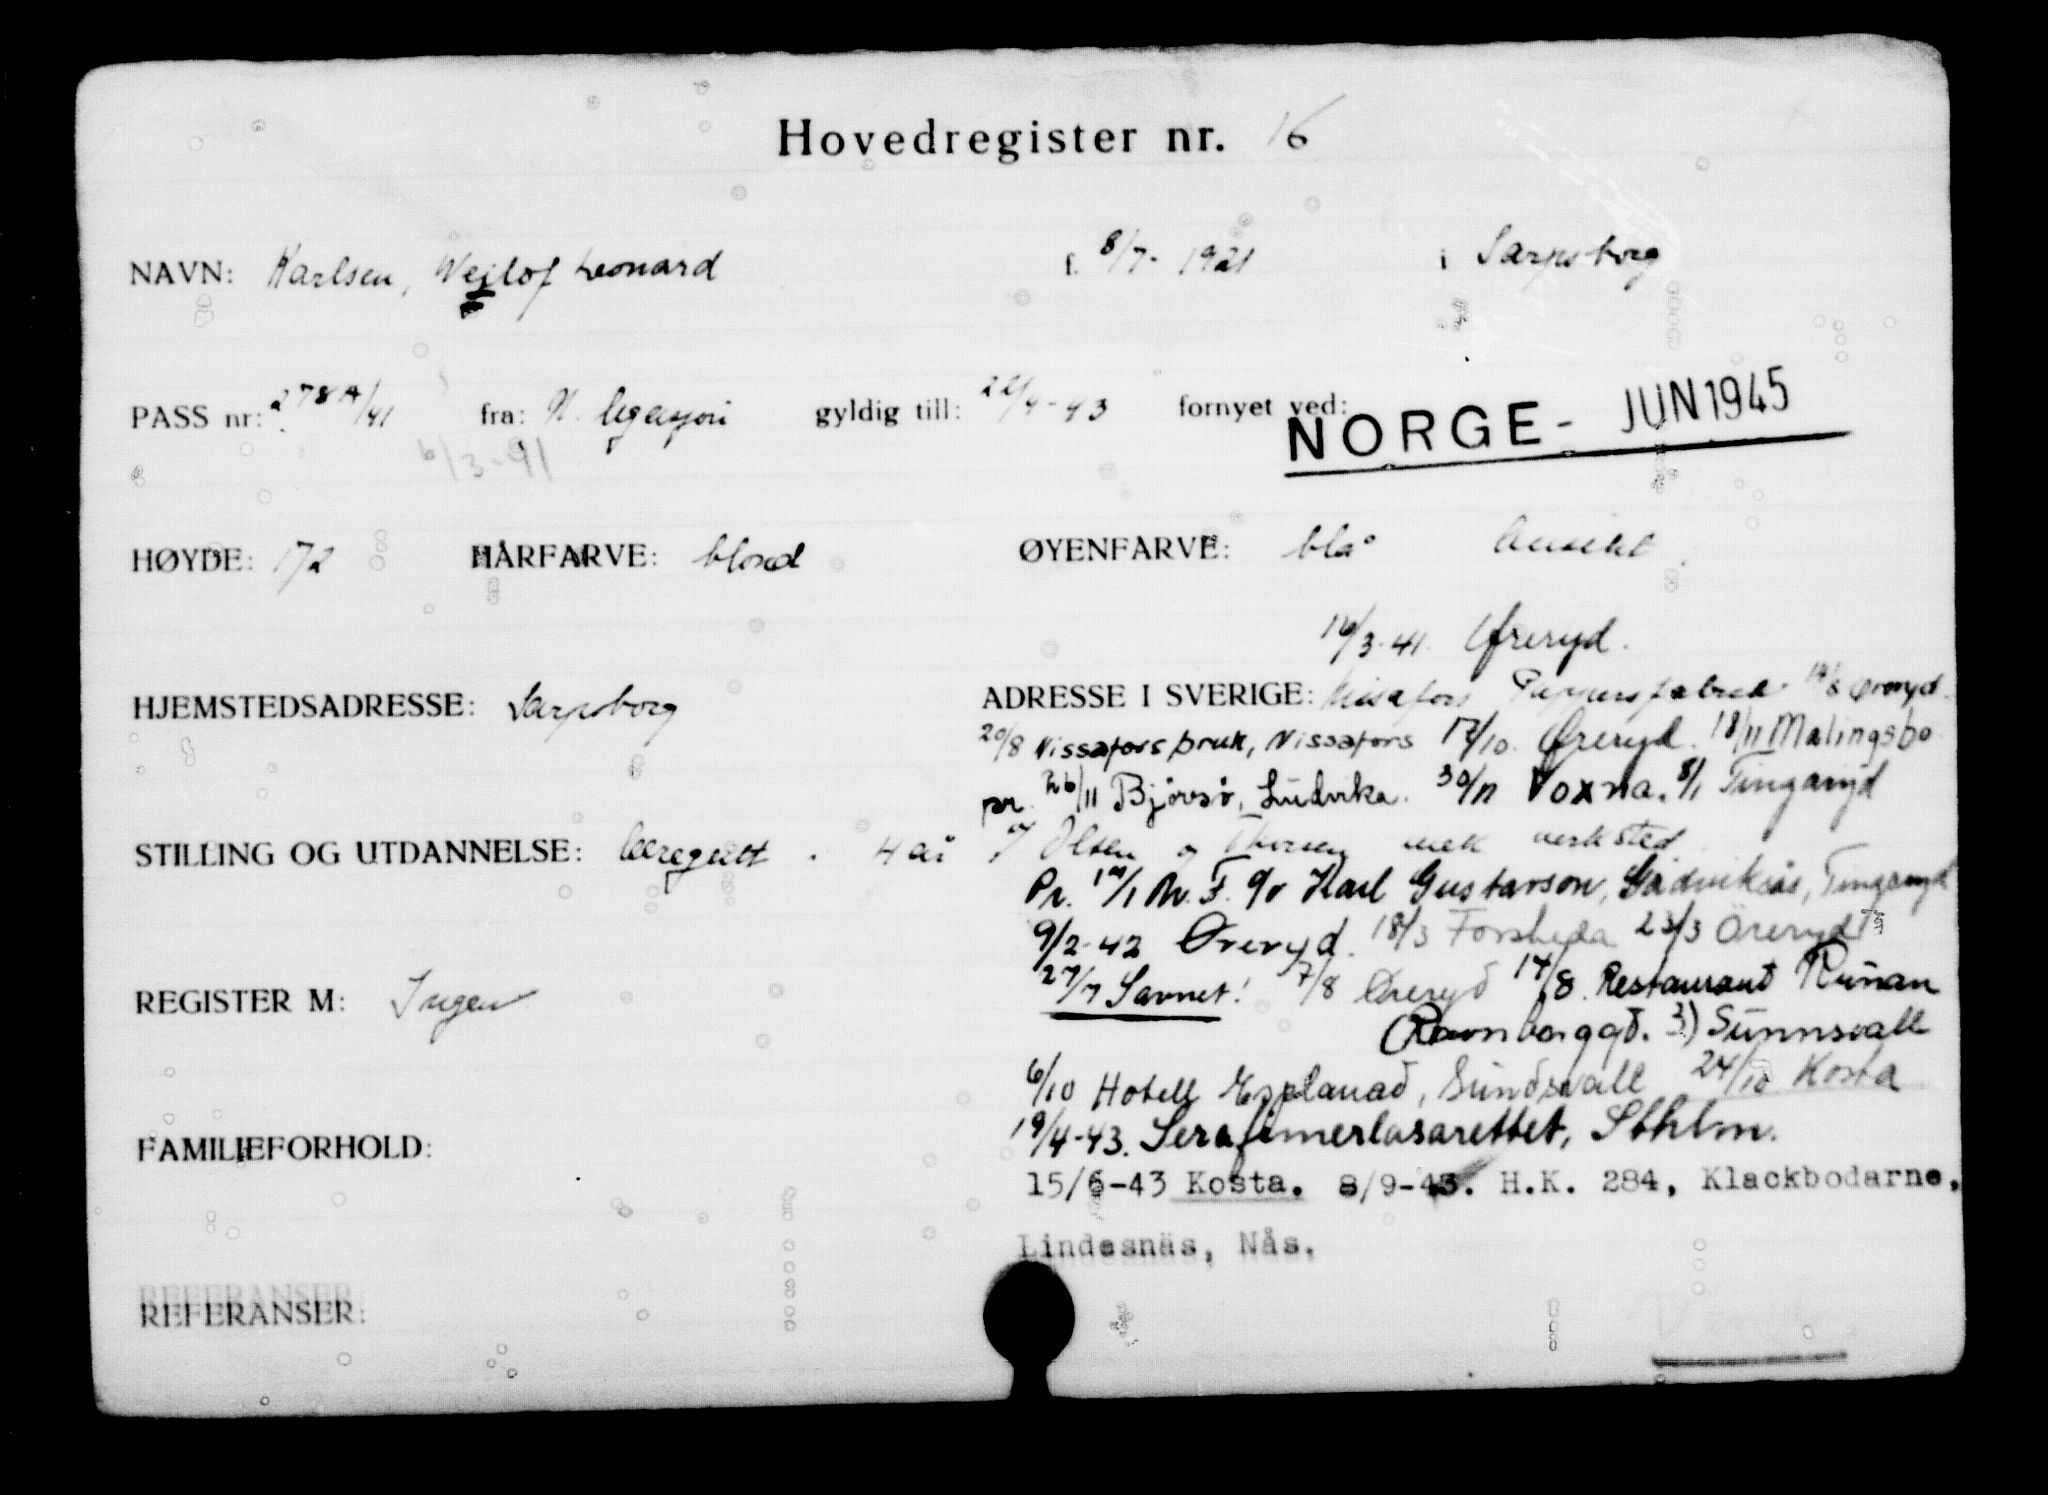 Hovedregister nr. 16
NAVN: Karlsen, Wejlof Leonard f. 8/7-1921 i Sarpsborg
PASS nr: 278A/41 fra: N. legasjon gyldig till: 22/4-43 fornyet ved:
NORGE - JUN 1945
6/3-41
HØYDE: 172 HÅRFARVE: blond ØYENFARVE: blå
16/3-41. Øreryd.
HJEMSTEDSADRESSE: Sarpsborg
ADRESSE I SVERIGE: Nissafors Pappersfabrik 14/8 Øreryd.
20/8 Nissafors bruk, Nissafors 17/10. Øreryd. 18/11 Malingsbo
pr. 26/11 Bjørsjö, Ludvika. 30/11 Voxna. 8/1 Tingaryd
STILLING OG UTDANNELSE: læregutt. 4 år v/ Olsen og Thorsen mek verksted
Pr. /1 M. F. c/o Karl Gustavson, Tingaryd
9/2-42 Øreryd. 18/3 Forsheda 23/3 Öreryd
27/7 Savnet! 7/8 Øreryd 14/8. Restaurant Runan
REGISTER M: Ingen
3) Sunnsvall
6/10 Hotell Esplanad, Sundsvall 24/10 Kosta
19/4-43. Serafimerlasarettet, Sthlm.
FAMILIEFORHOLD:
15/6-43 Kosta. 8/9-43. H.K. 284, Klackbodarne,
Lindesnäs, Nås.
REFERANSER:
REFERANSER: